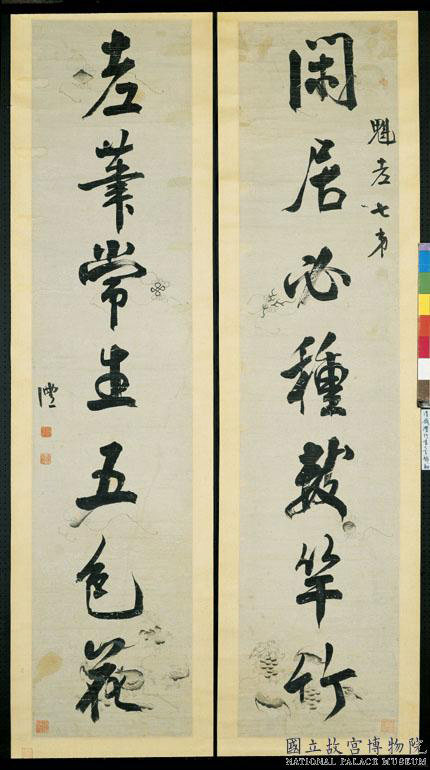 閑居必種數竿竹
魁老七弟
老筆常生五色花
國立故宮博物院
NATIONAL PALACE MUSEUM